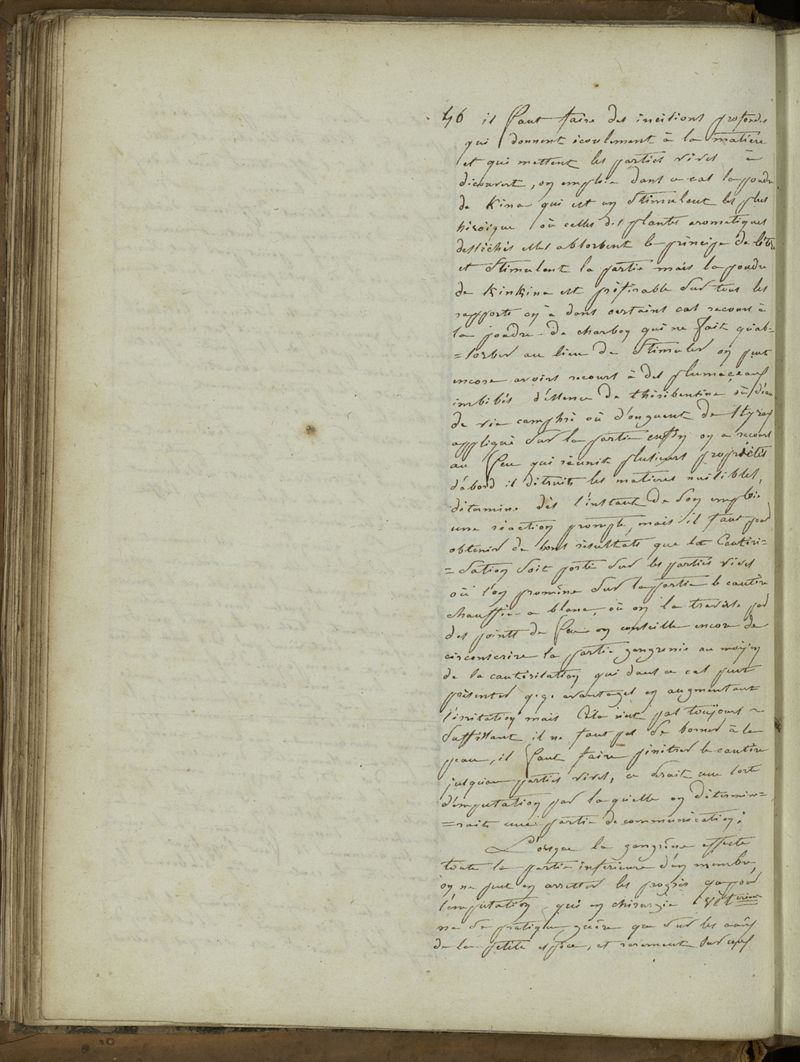 46 il faut faire des incitions profondes
qui donnent écoulement à la matière
et qui mettent les parties vives à
découvert, on emploie dans ce cas la poudre
de Kina qui est un stimulent les plus
héroique où celles des plantes aromatiques
desséchés elles absorbent le principe délétère
et stimulent la partie mais la poudre
de Kinkina est préférable sur tous les
rapports on a dans certains cas recours à
la poudre de charbon qui ne fait qu'ab-
=sorber au lieu de stimuler on peut
encore avoirs recours à des plumaceaux
imbibés d'éssence de thérébentine où d'eau
de vie camphré où d'onguent de styrax
appliqué sur la partie enfin on a recourt
au feu qui réunit plusieurs propriétés
d'abord il détruit les matières nuisibles,
détermine dès l'instant de son emploi
une réaction prompte, mais il faut pour
obtenir de bons résultats que la Cautéri-
=sation soit porté sur les parties vives
où l'on promène sur la partie le cautère
chauffée a blanc, où on la traverse par
des points de feu on conseille encore de
circonscrire la partie gangrenée au moyen
de la cautérisation qui dans ce cas peut
présenter q.q. avantages en augmentant
l'irritation mais Cela n'est pas toujours
suffisant il ne faut pas se borner à la
peau, il faut faire pénétrer le cautère
jusqu'au parties vives, ce serait une sorte
d'emputation par laquelle on détermin-
=rait une partie de communication;
Lorsque la gangrène affecte
toute la partie inférieure d'un membre,
on ne peut en arretter les progrès que par
l'emputation qui en chirurgie vétérinaire
ne se pratique guère que sur les
de la petite espèce, et rarement sur ceux